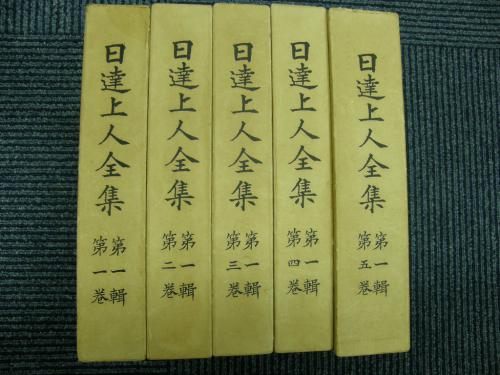 日達上人全集
第一輯
第一巻
日達上人全集
第一輯
第二巻
日達上人全集
第一輯
第三巻
日達上人全集
第一輯
第四巻
日達上人全集
第一輯
第五巻